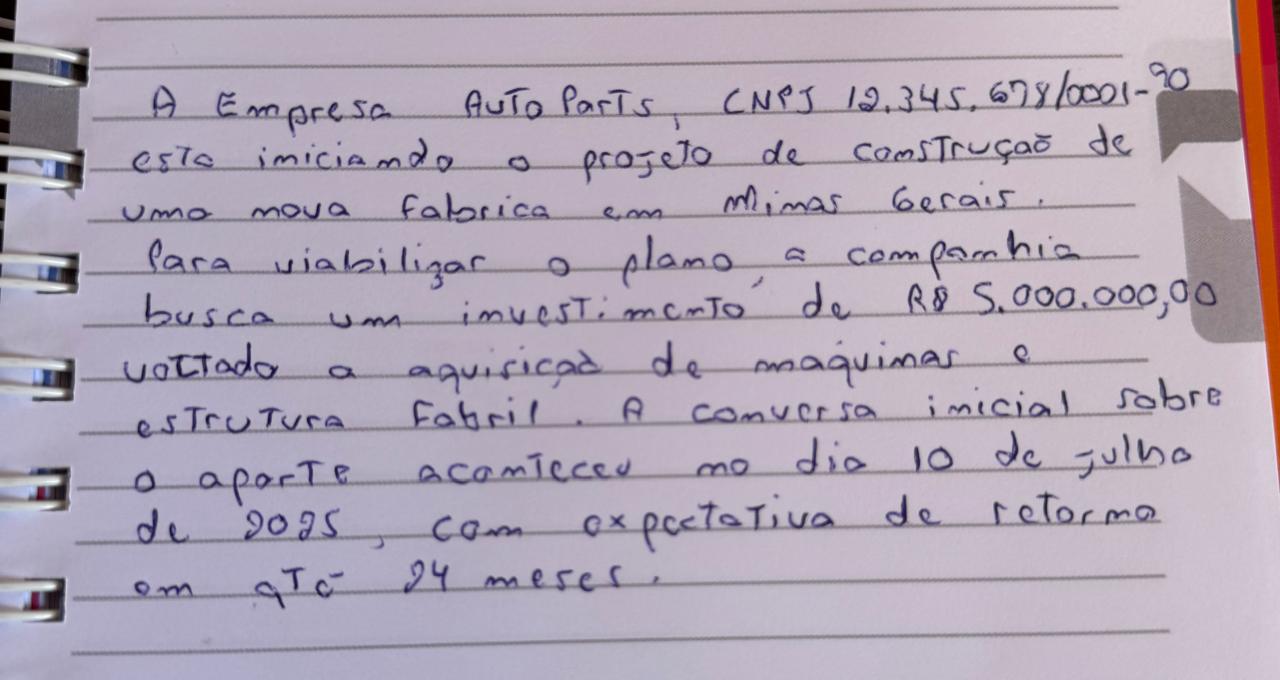 A Empresa AutoParts, CNPJ 12.345.678/0001-90
está iniciando o projeto de construção de
uma nova fabrica em Minas Gerais.
Para viabilizar o plano, a companhia
busca um investimento de R$ 5.000.000,00
voltado a aquisição de maquinas e
estrutura fabril. A conversa inicial sobre
o aporte aconteceu no dia 10 de julho
de 2025, com expectativa de retorno
em até 24 meses.